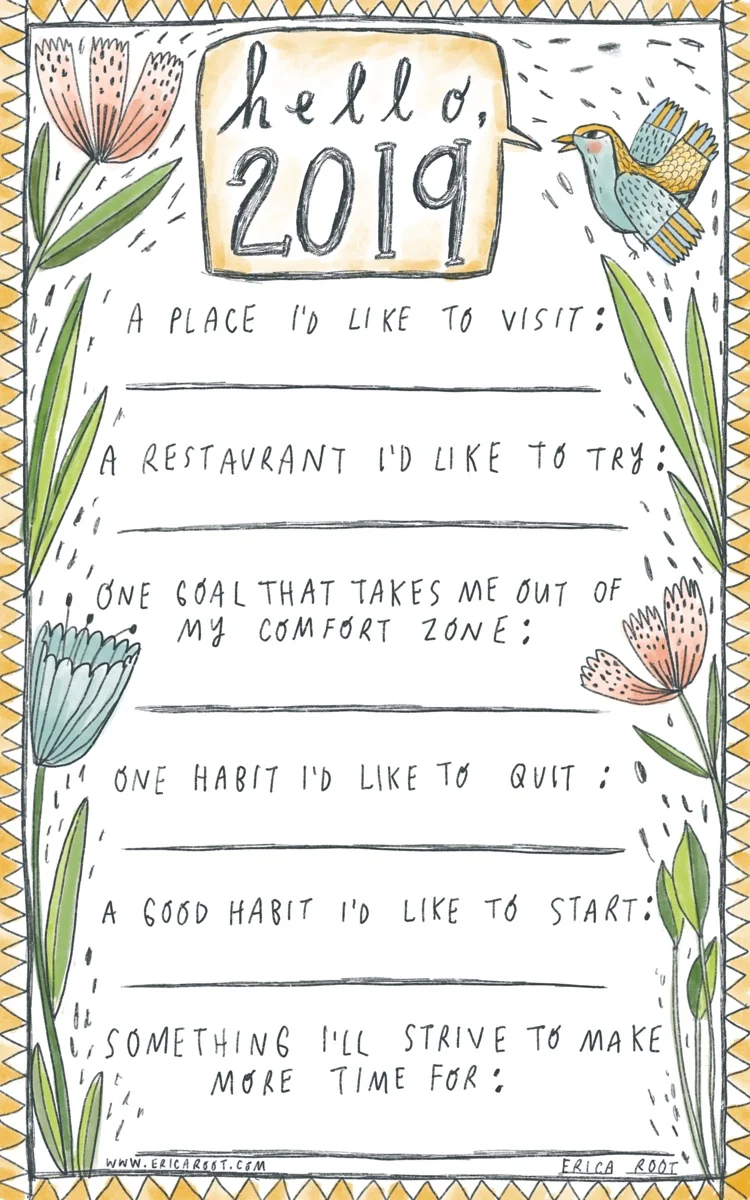 hello,
2019
A PLACE I'D LIKE TO VISIT:
A RESTAURANT I'D LIKE TO TRY:
ONE GOAL THAT TAKES ME OUT OF
MY COMFORT ZONE:
ONE HABIT I'D LIKE TO QUIT :
A GOOD HABIT I'D LIKE TO START:
SOMETHING I'LL STRIVE TO MAKE
MORE TIME FOR:
WWW.ERICAROOT.COM
ERICA ROOT